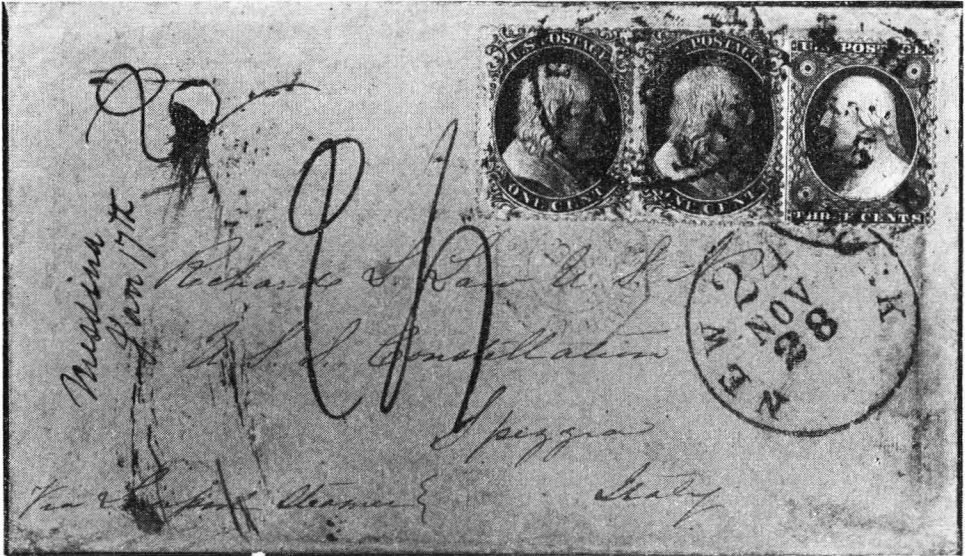 U.S. POSTAGE
ONE CENT
U.S. POSTAGE
ONE CENT
U.S. POSTAGE
THREE CENTS
NEW YORK
NOV
28
Messina
Jan 17th
Richard L. Law U. S. N.
U. S. S. Constellation
Spezzia
Italy
Via Steamer